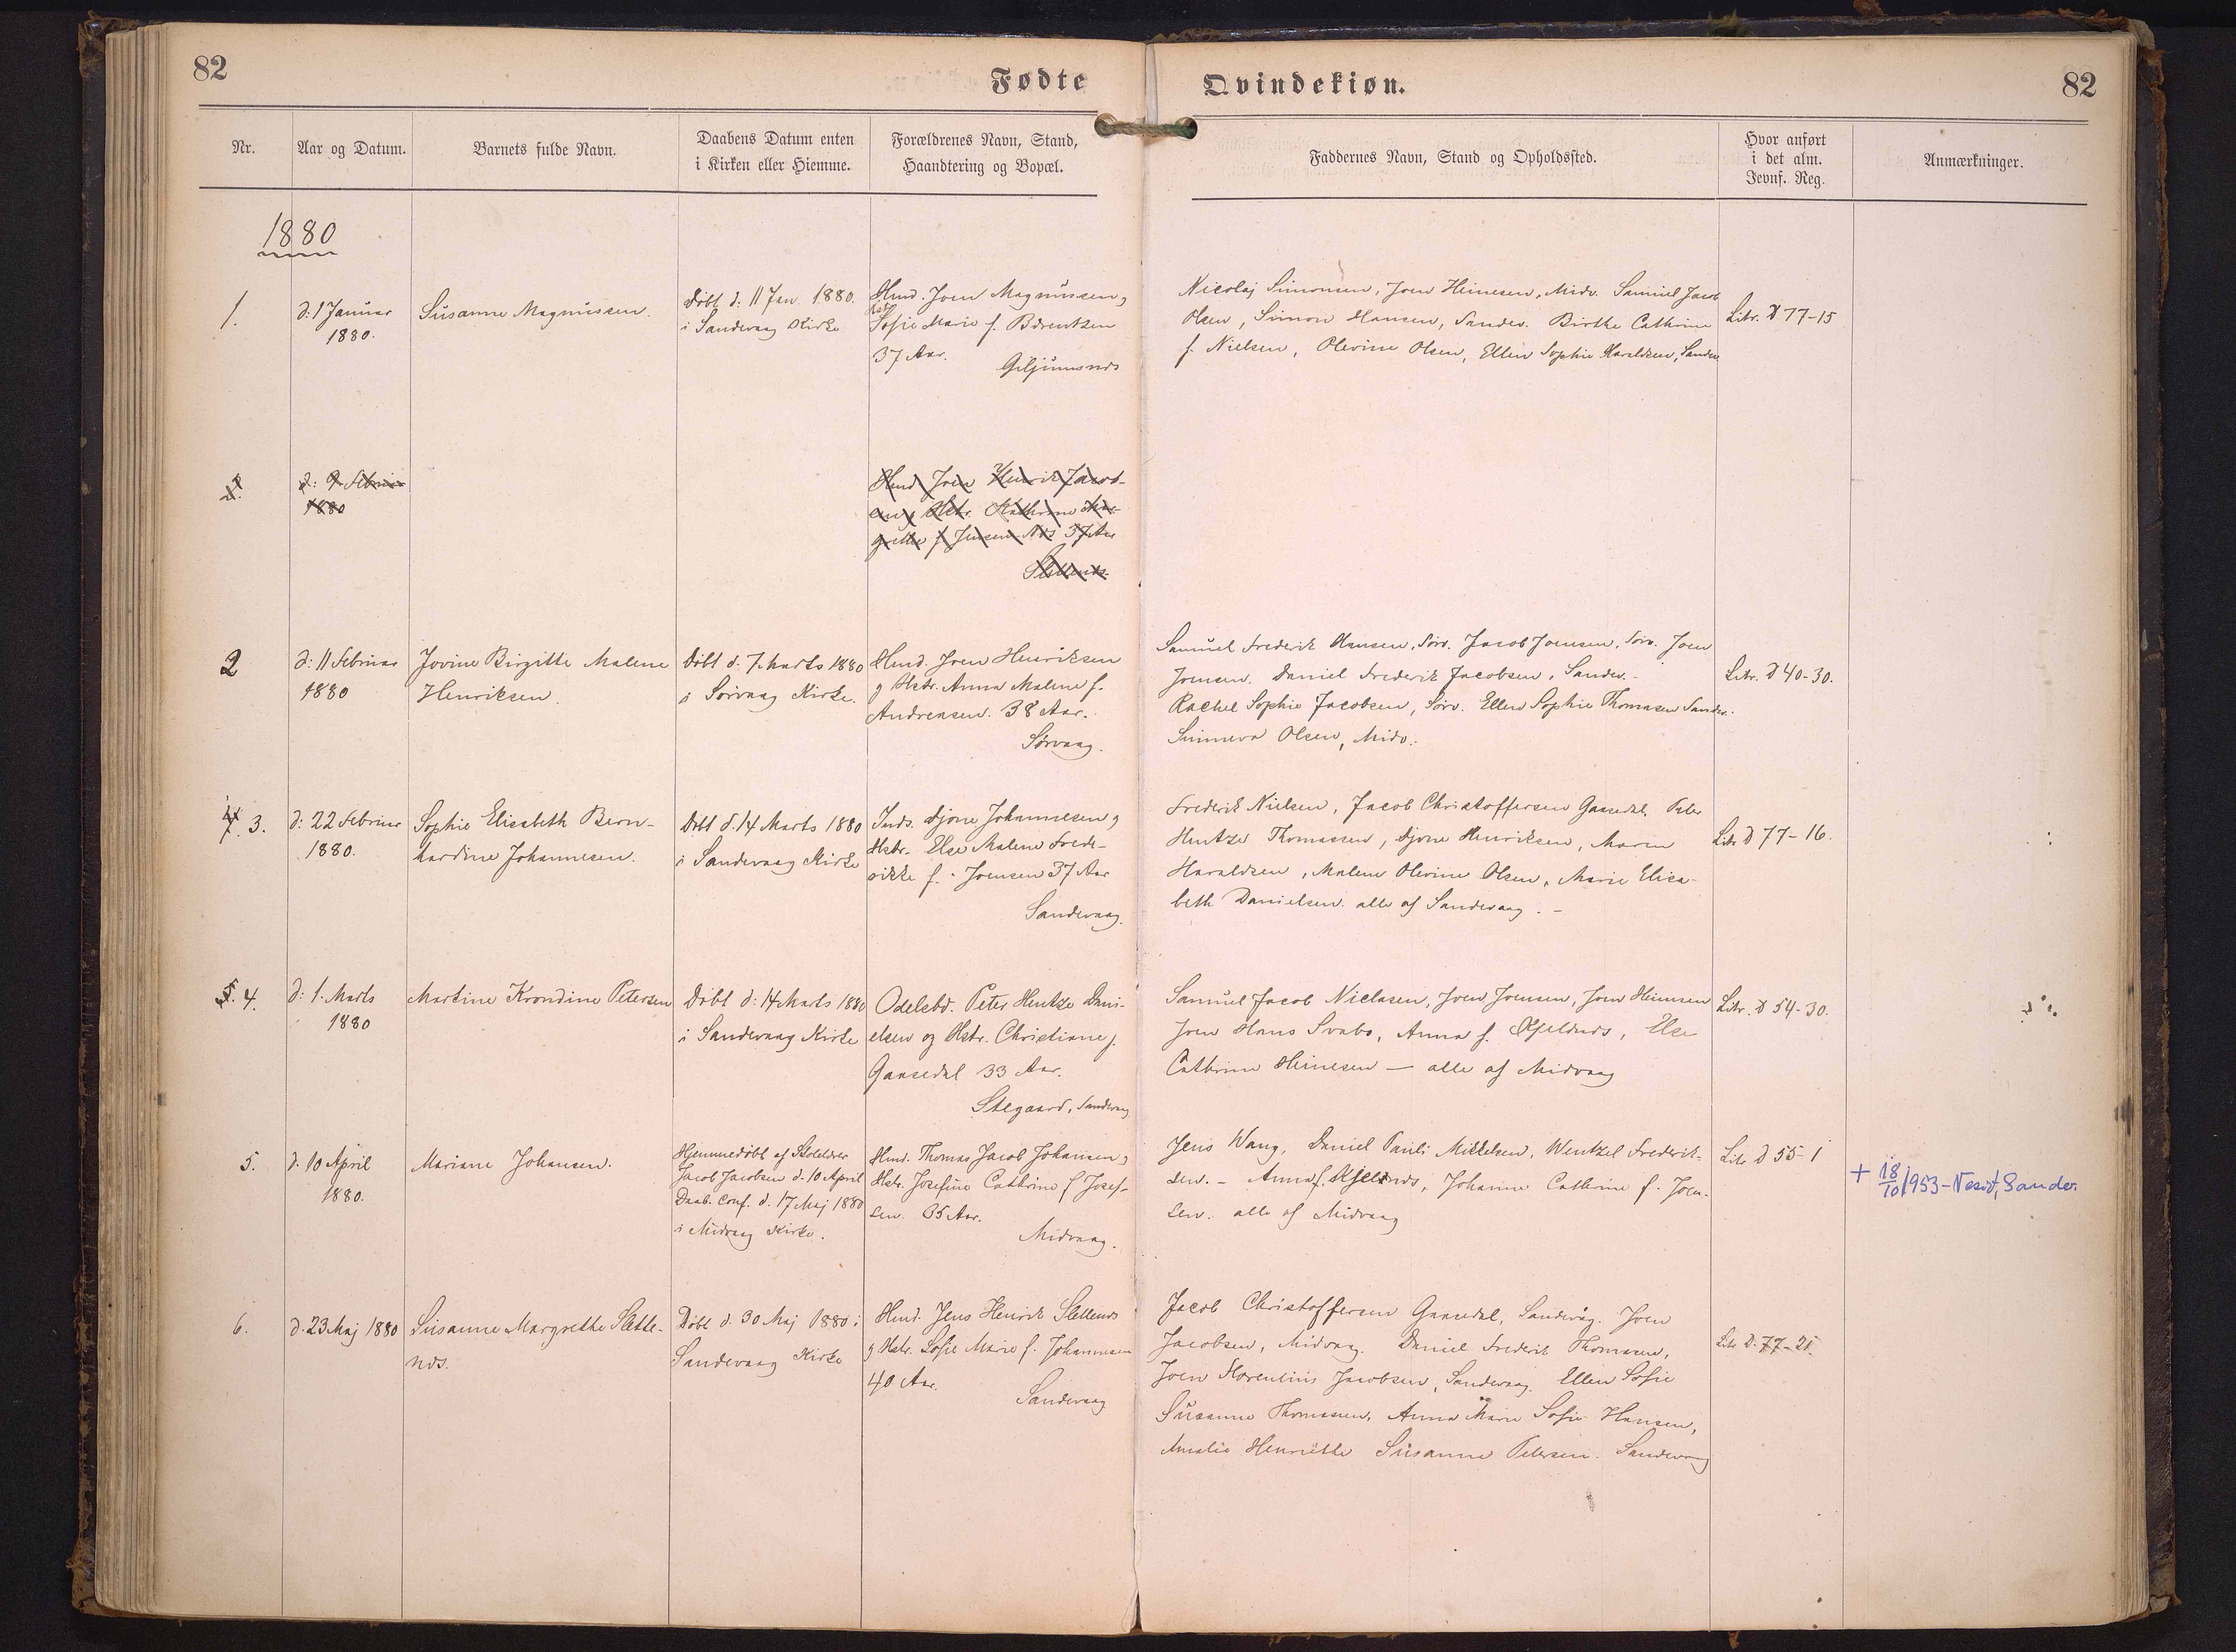 82
Fødte
Qvindekiøn.
82
Nr.
Aar og Datum.
Barnets fulde Navn.
Daabens Datum enten
i Kirken eller Hiemme.
Forældrenes Navn, Stand,
Haandtering og Bopæl.
Faddernes Navn, Stand og Opholdssted.
Hvor anført
i det alm.
Jevnf. Reg.
Anmærkninger.
1880
1.
d: 1 Januar
1880.
Susanne Magnussen.
Døbt d: 11 Jan. 1880.
i Sandevaag Kirke
Hmd. Joen Magnussen,
Hstr.
Sofie Marie f. Bærentsen
37 Aar.
Giljumsnds
Nicolaj Simonsen, Joen Heinesen, Midv. Samuel Jacob
Olsen, Simon Hansen, Sandev. Birthe Cathrine
f. Nielsen, Olevine Olsen, Ellen Sophie Haraldsen, Sandev
Litr. D 77-15
2.
d: 9 Februar
1880
Hmd Joen Henrik Jacob-
sen g Hstr. Kathrine Mar-
grethe f Jensen Nds 37 Aar
Slettends.
2
d: 11 Februar
1880
Jovine Birgitte Malene
Henriksen.
Døbt d. 7. Marts 1880
i Sørvaag Kirke.
Hmd. Joen Henriksen
g Hstr. Anna Malene f.
Andreasen. 38 Aar.
Sørvaag.
Samuel Frederik Hansen, Sørv. Jacob Joensen, Sørv. Joen
Joensen. Daniel Frederik Jacobsen, Sandev.-
Rachel Sophie Jacobsen, Sørv. Ellen Sophie Thomasen Sandev.
Sunneva Olsen, Midv.
Litr. D 40-30.
4. 3.
d: 22 Februar
1880.
Sophie Elisabeth Bern-
hardine Johannesen.
Døbt d. 14 Marts 1880
i Sandevaag Kirke
Inds. Djone Johannesen g
Hstr. Else Malene Frede-
rikke f. Joensen 37 Aar
Sandevaag.
Frederik Nielsen, Jacob Christoffersen Gaasedal, Peter
Hentze Thomassen, Djone Henriksen, Maren
Haraldsen, Malene Olevine Olsen, Marie Elisa-
beth Danielsen. alle af Sandevaag. -
Litr D 77-16.
5. 4.
d: 1. Marts
1880
Martine Krondine Petersen
Døbt d: 14 Marts 1880
i Sandevaag Kirke
Odelsbd. Peter Hentze Dani-
elsen og Hstr. Christiane f.
Gaasedal 33 Aar.
Stegaard, Sandevaag
Samuel Jacob Niclasen, Joen Joensen, Joen Heinesen
Joen Hans Svabo, Anna f. Kjeldnds, Else
Cathrine Heinesen — alle af Midvaag
Litr. D 54-30.
5.
d. 10 April
1880.
Mariane Johansen.
Hjemmedøbt af Skolelærer
Jacob Jacobsen d. 10 April
Daab. Conf. d. 17 Maj 1880
i Midvaag Kirke.
Hmd. Thomas Jacob Johansen g
Hstr. Josefine Cathrine f Josef-
sen. 35 Aar.
Midvaag.
Jens Wang, Daniel Pauli Mikkelsen, Wentzel Frederik-
sen. - Anna f. Kjeldnds, Johanne Cathrine f. Joen-
sen. alle af Midvaag
Litr D 55-1
+ 18/10 1953 - Nesið, Sandav.
6.
d. 23 Maj 1880
Susanne Margrethe Slette-
nds.
Døbt d. 30 Maj 1880 i
Sandevaag Kirke
Hmd. Jens Henrik Slettends
g Hstr. Sofie Marie f. Johannesen
40 Aar.
Sandevaag
Jacob Christoffersen Gaasedal, Sandevåg. Joen
Jacobsen, Midvaag. Daniel Frederik Thomasen,
Joen Florentius Jacobsen, Sandevaag. Ellen Sofie
Susanne Thomasen, Anna Marie Sofie Hansen,
Amalie Henriette Susanne Petersen. Sandevaag
Litr D. 77-21.